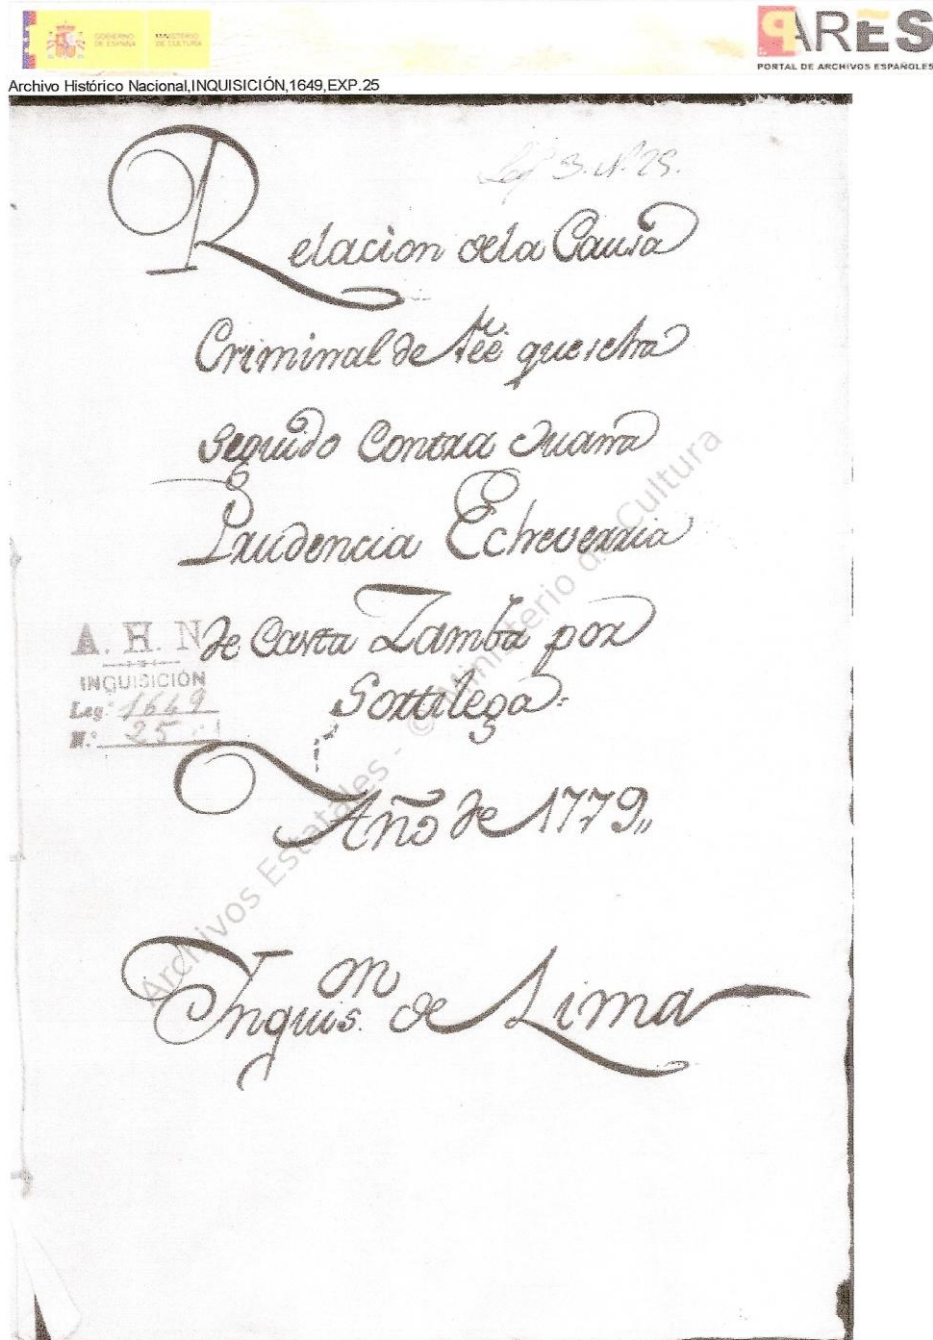 GOBIERNO DE ESPAÑA
MINISTERIO DE CULTURA
PARES
PORTAL DE ARCHIVOS ESPAÑOLES
Archivo Histórico Nacional,INQUISICIÓN,1649,EXP.25
Leg 3. N. 25.
Relacion dela Causa
Criminal de feé que seha
seguido Contra Juana
Prudencia Echeverria
de Casta Zamba por
Sortilega=
Año de 1779,,
Inquis.on de Lima
A. H. N
INQUISICIÓN
Leg.o 1649
N.o 25
Archivos Estatales - © Ministerio de Cultura